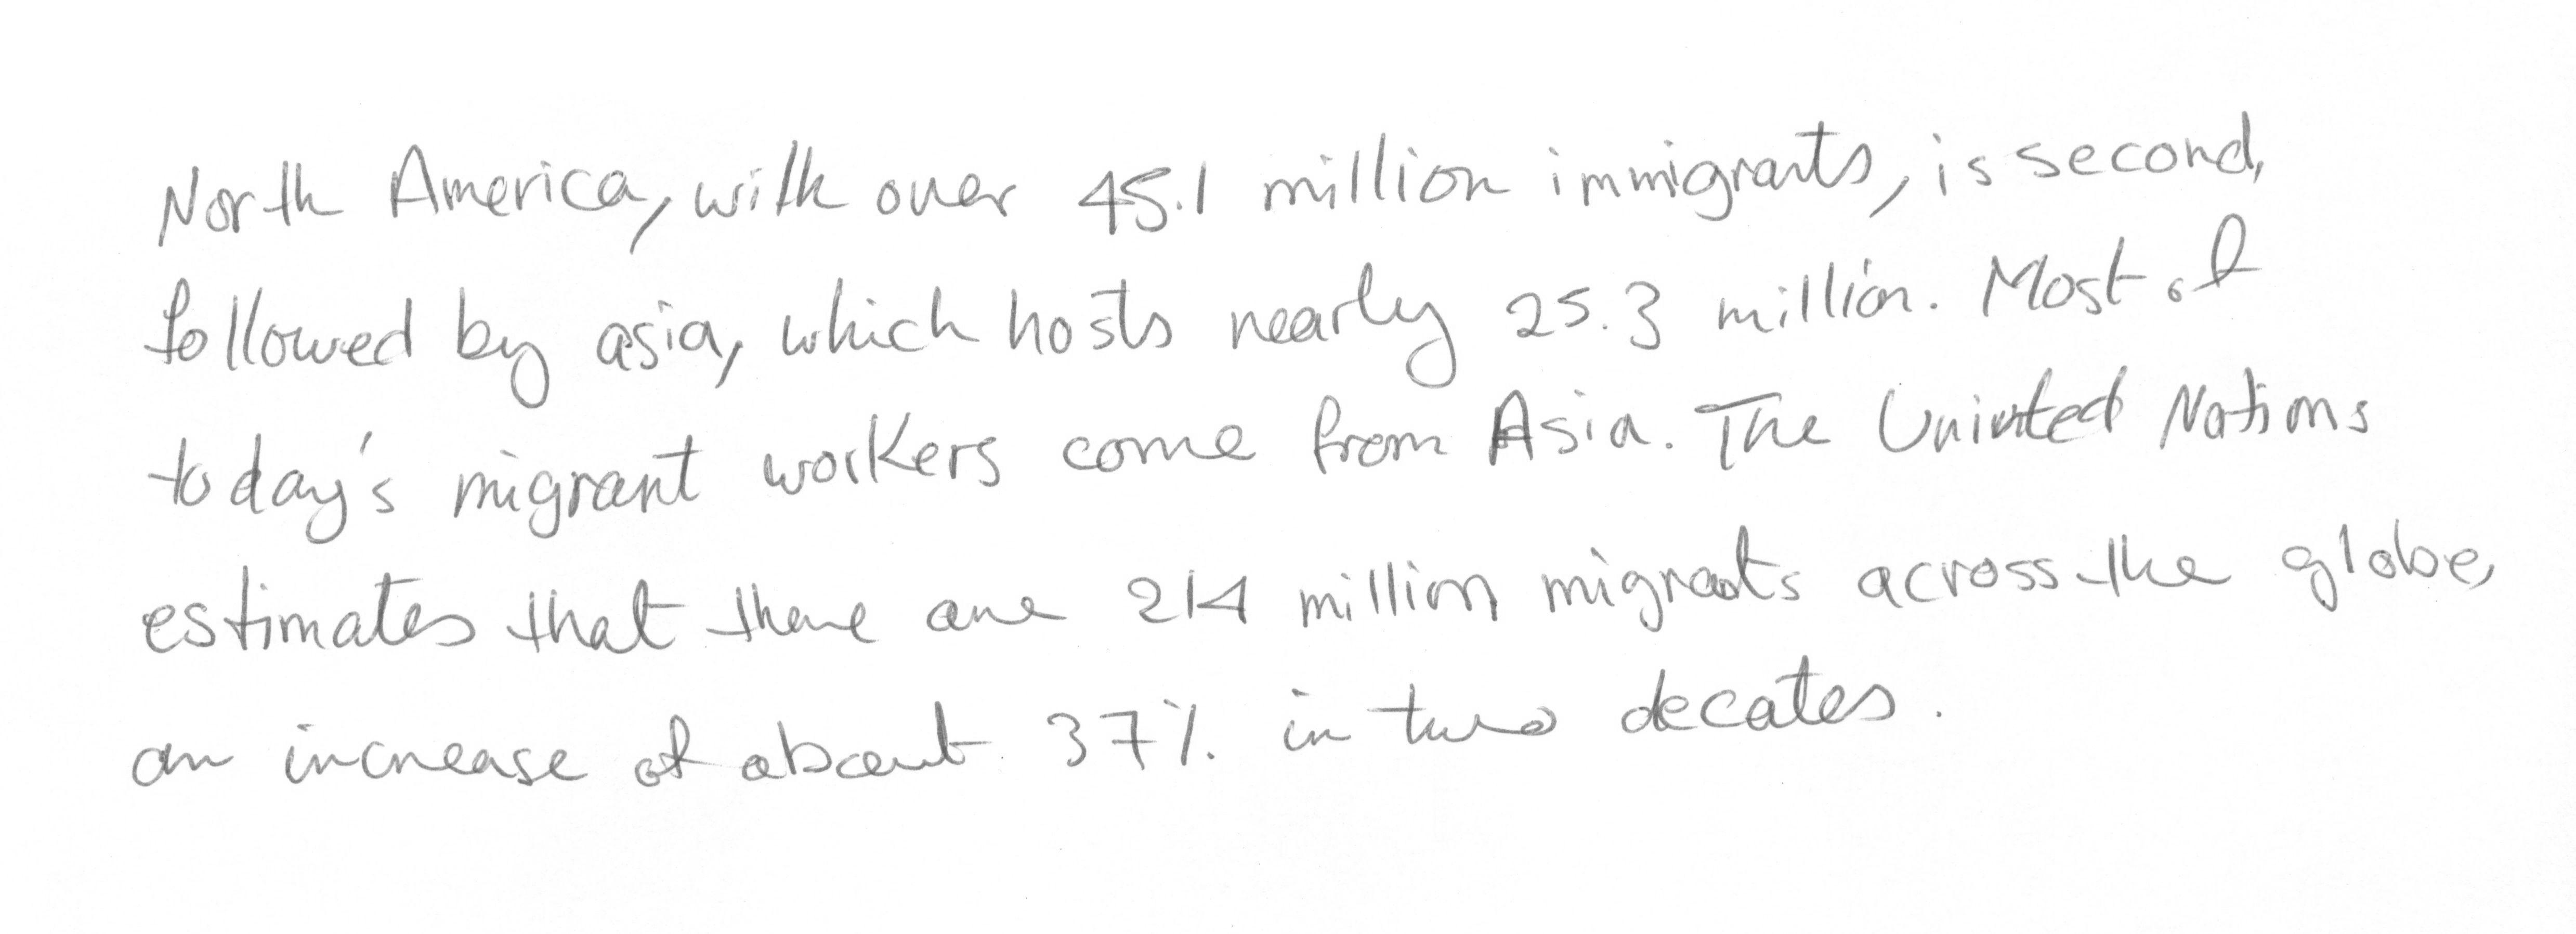 North America, with over 45.1 million immigrants, is second,
followed by asia, which hosts nearly 25.3 million. Most of
today's migrant workers come from Asia. The Uninted Nations
estimates that there are 214 million migrants across the globe,
an increase of about 37% in two decates.